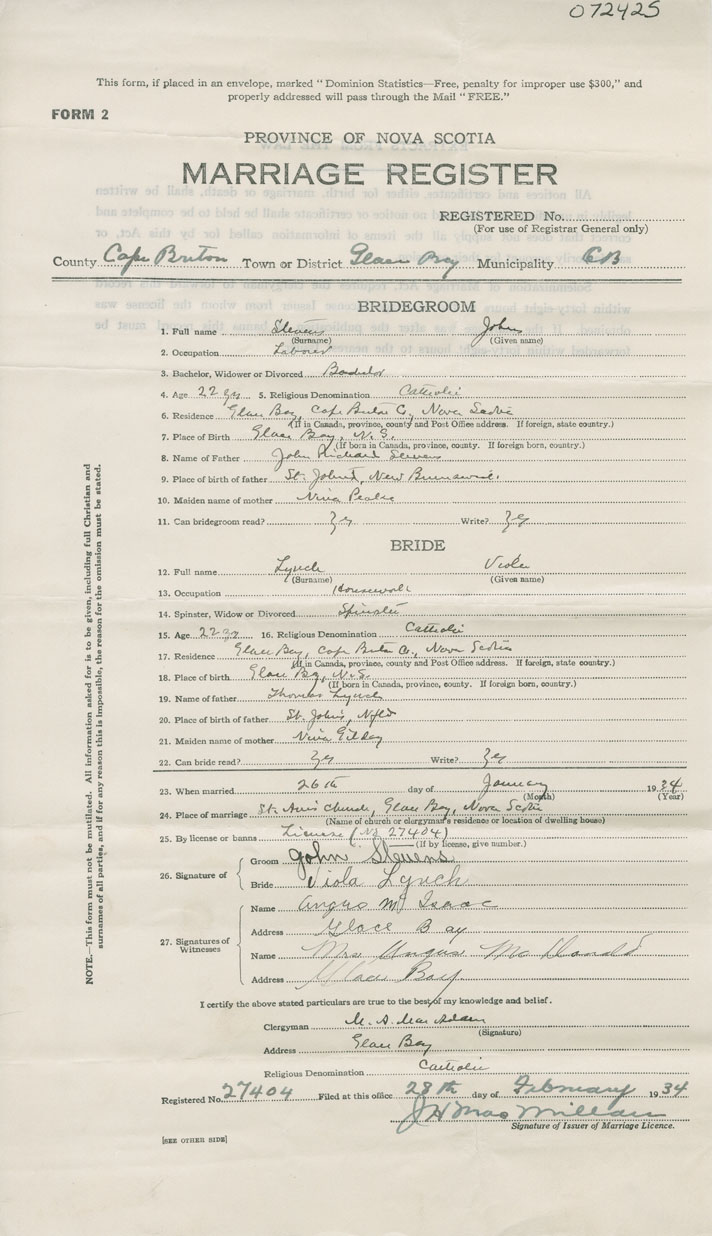 072425
This form, if placed in an envelope, marked "Dominion Statistics—Free, penalty for improper use $300," and
properly addressed will pass through the Mail "FREE."
FORM 2
PROVINCE OF NOVA SCOTIA
MARRIAGE REGISTER
REGISTERED No.
(For use of Registrar General only)
County Cape Breton Town or District Glace Bay Municipality CB
BRIDEGROOM
1. Full name Stevens John
(Surname) (Given name)
2. Occupation Labourer
3. Bachelor, Widower or Divorced Bachelor
4. Age 22 yrs 5. Religious Denomination Catholic
6. Residence Glace Bay, Cape Breton Co., Nova Scotia
(If in Canada, province, county and Post Office address. If foreign, state country.)
7. Place of Birth Glace Bay, N.S.
(If born in Canada, province, county. If foreign born, country.)
8. Name of Father John Richard Stevens
9. Place of birth of father St. John, New Brunswick.
10. Maiden name of mother Nina
11. Can bridegroom read? Yes Write? Yes
BRIDE
12. Full name Lynch Viola
(Surname) (Given name)
13. Occupation Housework
14. Spinster, Widow or Divorced Spinster
15. Age 22 yrs 16. Religious Denomination Catholic
17. Residence Glace Bay, Cape Breton Co., Nova Scotia
(If in Canada, province, county and Post Office address. If foreign, state country.)
18. Place of birth Glace Bay, N.S.
(If born in Canada, province, county. If foreign born, country.)
19. Name of father Thomas Lynch
20. Place of birth of father St. John's, Nfld
21. Maiden name of mother Nina Gilday
22. Can bride read? Yes Write? Yes
23. When married 26th day of January 1934
(Month) (Year)
24. Place of marriage St. Ann's Church, Glace Bay, Nova Scotia
(Name of church or clergyman's residence or location of dwelling house)
25. By license or banns License (No 27404)
(If by license, give number.)
26. Signature of Groom John Stevens
Bride Viola Lynch
27. Signatures of Witnesses Name Angus Mc Isaac
Address Glace Bay
Name Mrs Angus Mc Donald
Address Glace Bay
I certify the above stated particulars are true to the best of my knowledge and belief.
Clergyman M. A. MacAdam
(Signature)
Address Glace Bay
Religious Denomination Catholic
Registered No. 27404 Filed at this office 28th day of February 1934
J H MacMillan
Signature of Issuer of Marriage Licence.
[SEE OTHER SIDE]
NOTE.—This form must not be mutilated. All information asked for is to be given, including full Christian and
surnames of all parties, and if for any reason this is impossible, the reason for the omission must be stated.